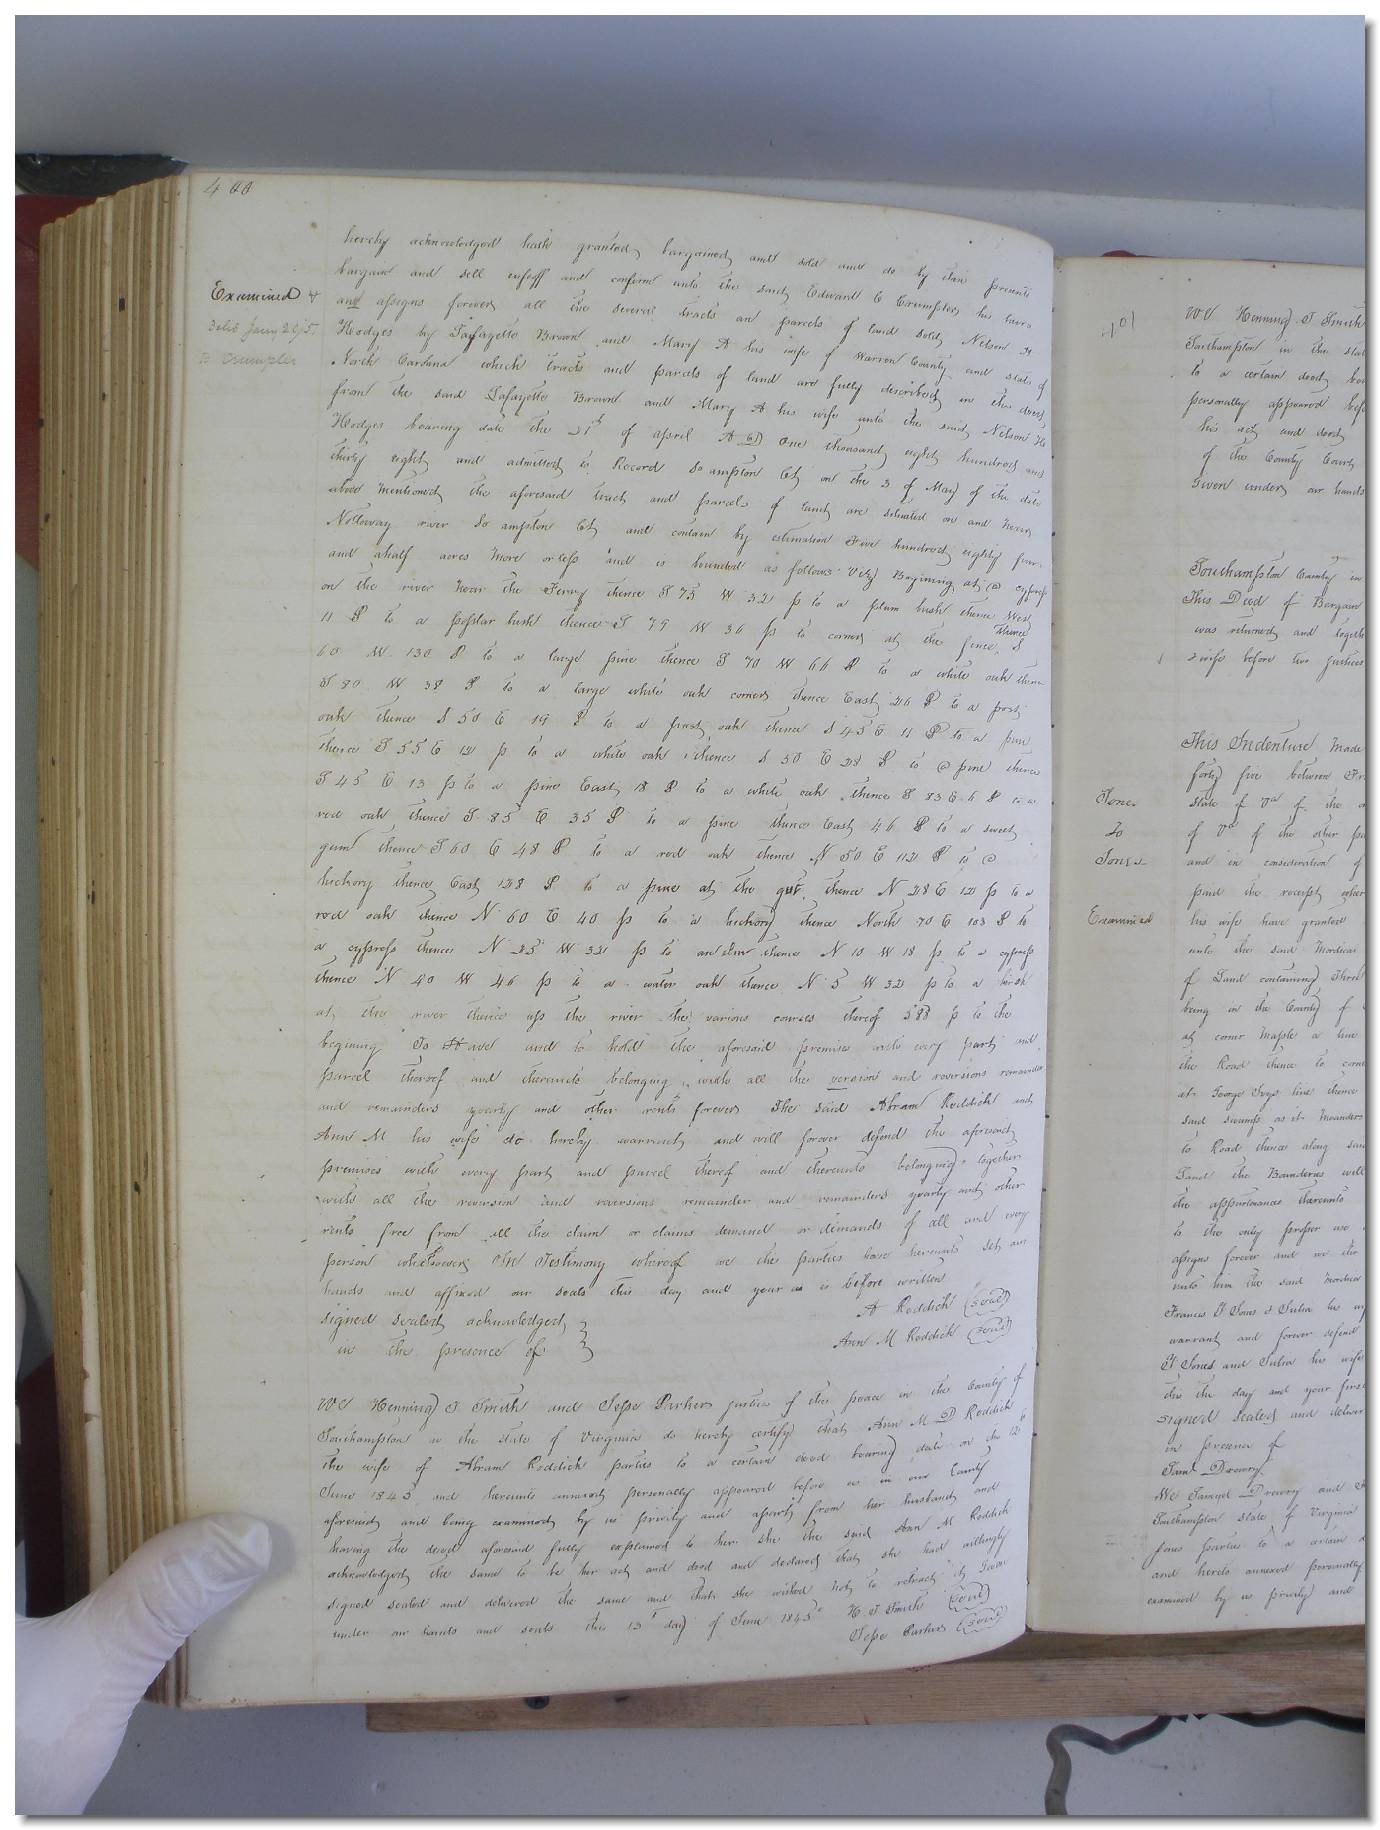 400
hereby acknowledged hath granted, bargained, and sold and do by thes presents
Examined &
bargain and sell enfeoff and confirm unto the said, Edward C Crumpler, his heirs
and assigns forever all the several tracts an parcels of land sold, Nelson H
Delid Jany 29/5
Hodges by Lafayette Brown and Mary A his wife of Warren County and state of
to Crumpler
North Carolina which tracts and parcels of land are fully described, in the deed,
from the said Lafayette Brown and Mary A his wife unto the said, Nelson H
Hodges bearing date the 21th of april A D One thousand, eight hundred, and
thirty eight, and admitted, to Record So ampton Cty on the 3 of May of the date
above mentioned, the aforesaid tract and parcels of land, are situated on and near
Nottoway river So ampton Cty and contain by estimation Five hundred, eighty four
and ahalf acres more or less and is bounded as follows Viz, Begining at, a cypress
on the river near the Ferry thence S 75 W 32 p to a plum bush thence West
11 P to a poplar bush thence S 79 W 36 p to corner, at the fence, thence S
60 W 130 P to a large pine thence S 70 W 66 P to a white oak thence
S 80 W 38 P to a large white oak corner, thence East, 26 P to a post,
oak thence S 50 E 19 P to a post, oak thence S 45 E 11 P to a pine
thence S 55 E 12 p to a white oak thence S 30 E 28 P to a pine thence
S 45 E 13 p to a pine East, 18 P to a white oak thence S 83 E 6 P to a
red oak thence S 85 E 35 P to a pine thence East 46 P to a sweet,
gum thence S 60 E 48 P to a red oak thence N 50 E 112 P to a
hickory thence, East 128 P to a pine at, the gut, thence N 28 E 12 p to a
red oak thence N 60 E 40 p to a hickory thence North 70 E 103 P to
a cypress thence N 25 W 32 p to an elm thence N 10 W 18 p to a cypress
thence N 40 W 46 p to a water oak thence N 5 W 32 p to a birch
at, the river thence up the river the various courses thereof 588 p to the
begining To Have and to hold the aforesaid premises with every part, and
parcel thereof and thereunto belonging with all the version and reversions remainder
and remainders yearly and other rents forever The said Abram Reddick and,
Ann M his wife do hereby warrant, and will forever defend the aforesaid,
premises with every part and parcel thereof and thereunto belonging together
with all the reversion and reversions remainder and remainders yearly and, other
rents free from all the claim or claims demand or demands of all and every
person whatsoever, In Testimony whereof we the parties have hereunto set our
hands and affixed our seals this day and year as is before written
A Reddick (Seal)
signed sealed, acknowledged,
Ann M Reddick (Seal)
in the presence of
We Henning, T Smith and Jesse Parker, justice of the peace in the County of
Southampton in the state of Virginia do hereby certify, that, Ann M D Reddick
the wife of Abram Reddick parties to a certain deed bearing, date on the 12th
June 1845 and hereunto annexed, personally appeared before us in our County
aforesaid, and being examined, by us privily and apart, from her husband and
having the deed aforesaid fully explained to her she the said Ann M Reddick
acknowledged, the same to be her act and deed and declared, that, she had willingly
signed sealed and delivered the same and that, she wished not, to retract, it, Given
under our hands and seals this 13th day, of June 1845 H. T Smith (Seal)
Jesse Parker (Seal)
401
We Henning, T Smith
Southampton in the stat
to a certain deed,
personally appeared bef
his act and deed
of the County Court
Given under, our hands
Southampton County in
This Deed of Bargain
was returned, and togeth
& wife before two justices
This Indenture, Made
forty, five between Fr
Jones
State of Va of the o
To
of Va of the other pa
Jones
and in consideration of
paid the receipt,
Examined
his wife have granted
unto the said Mordicai
of Land containing Three
being in the County, of
at, corner Maple a line
the Road thence to corne
at George Ivys line thence
said swamp as it meanders
to Road thence along said
Land the Bounderies will
the appurtenances thereunto
to the only proper use
assigns forever and we the
unto him the said Mordica
Francis T Jones & Julia his wi
warrant and forever defend
T Jones and Julia his wife
this the day and year first
signed sealed and deliver
in presence of
Saml Drewry
We Samuel Drewry and
Southampton State of Virginia
Jones parties to a certain
and hereto annexed personally
examined by us privily and